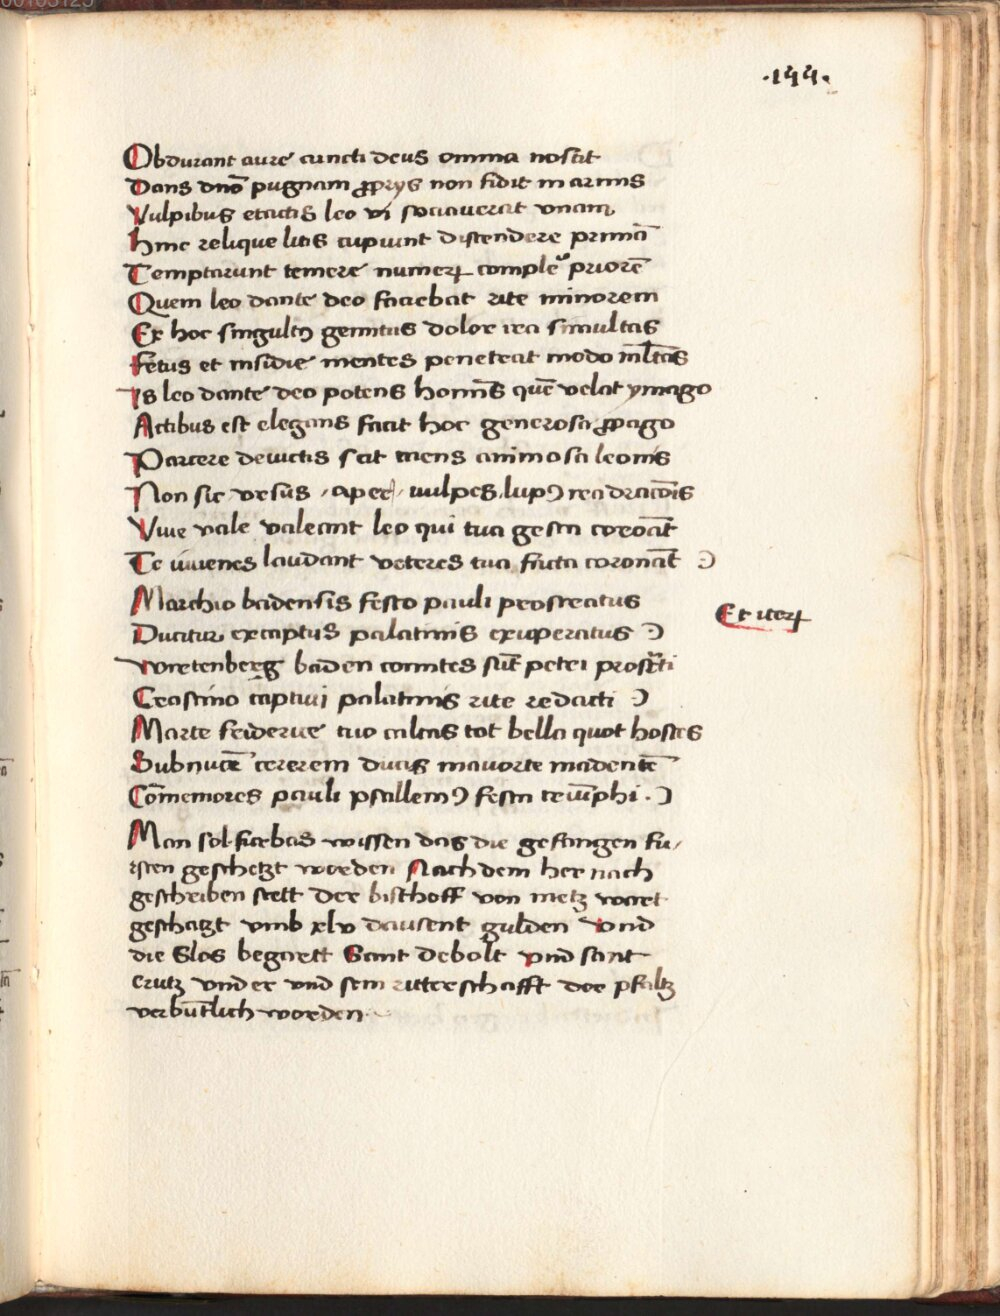 ·144·
Obdurant aure cuncti deus omnia noscit
Dans dnō pugnam ꝓprys non fidit in armis
Vulpibus etactis leo vi sociauerat vnam
Hinc relique litis cupiunt distendere primā
Temptarunt temere numerꝝ comple priorē
Quem leo dante deo faciebat rite minorem
Ex hoc singultꝰ gemitus dolor ira simultas
Fetus et insidie mentes penetrat modo ml̄tās
Is leo dante deo potens hominīs quē velat ymago
Actibus est elegans facit hoc generosa ꝓpago
Parcere deuictis scit mens animosa leonis
Non sic vrsus, aper, vulpes, lupꝰ rea draconīs
Viue vale valeant leo qui tua gesta coronāt
Te iuuenes laudant veteres tua facta coronāt
Marchio badensis festo pauli prostratus
Et iterꝝ
Ducitur excaptus palatinis exuperatus
Wretenberg baden comites sūt petri prostrati
Crastino captiui palatinis rite redacti
Marte friderice tuo calcas tot bella quot hostes
Cōmemores pauli psallemꝰ festa triūphi.
Man sol furbas wissen das die gefangen fu,
rsten geschetzt worden Nach dem her nach
geschriben stett Der bisthoff von metz wart
geschatzt vmb xlv dausent gulden Vnd
die Slos begnett Sant Debolt vnd sant
Crutz Vnd er vnd sein ritterschafft der pfaltz
verbūtlich worden